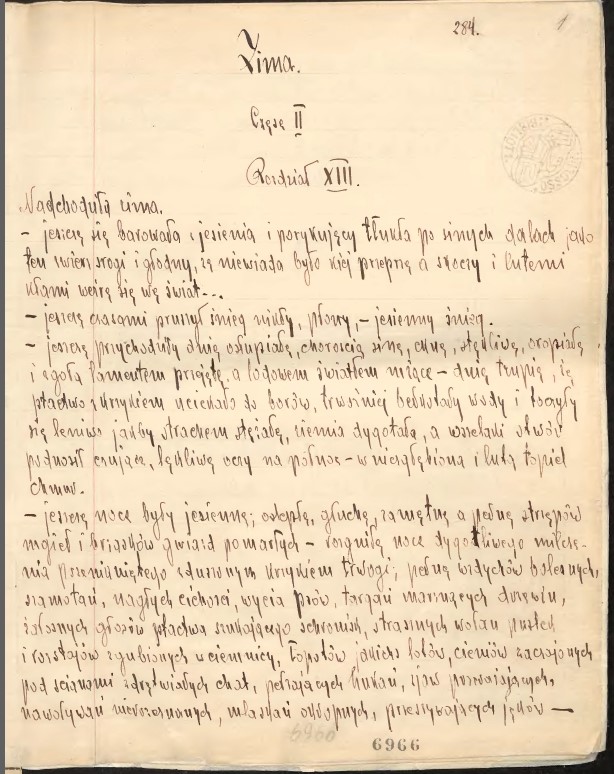 284.
1
Zima.
Część II
Rozdział XIII.
Nadchodziła zima.
– jeszcze się barowała z jesienią i porykujący tłukła po sinych dalach jako
ten zwierz srogi i głodny, że niewiada było kiej przeprze a skoczy i lutemi
kłami weżre się we świat...
– jeszcze czasami pruszył śnieg nikły, płowy, – jesienny śnieg.
– jeszcze przychodziły dnie osłupiałe, chorością sine, ckne, stękliwe, oropiałe
i zgoła lamentem przejęte, a lodowem światłem mżące – dnie trupie, że
ptactwo z krzykiem uciekało do borów, trwożniej bełkotały wody i toczyły
się leniwo jakby strachem stężałe, ziemia dygotała, a wszelaki stwór
podnosił czujące, lękliwe oczy na północ – w niezgłębioną i lutą topiel
chmur.
– jeszcze noce były jesienne; oślepłe, głuche, zamętne a pełne strzępów
mgieł i brzasków gwiazd pomarłych – rozgniłe noce dygotliwego milcze-
nia przenikniętego zduszonym krzykiem trwogi; pełne wzdychów bolesnych,
szamotań, nagłych cichości, wycia psów, targań marznących drzewin,
żałosnych głosów ptactwa szukającego schronisk, strasznych wołań pustek
i rozstajów zgubionych w ciemnicy, łopotów jakichś lotów, cieniów zaczajonych
pod ścianami zdrętwiałych chat, pełzających hukań, zjaw przerażających,
nawoływań nierozeznanych, mlaskań okropnych, przeszywających jęków —
6966
6966